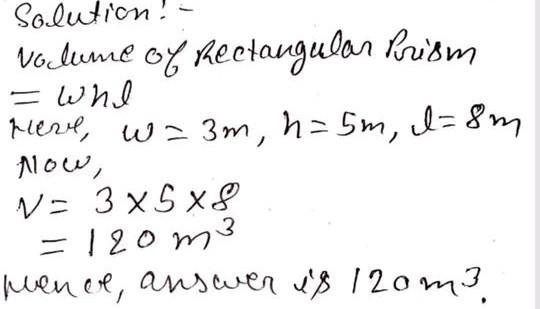 Solution:-
Volume of Rectangular Prism
= whl
Here, w = 3m, h = 5m, l = 8m
Now,
V = 3 × 5 × 8
= 120 m³
Hence, answer is 120m³.